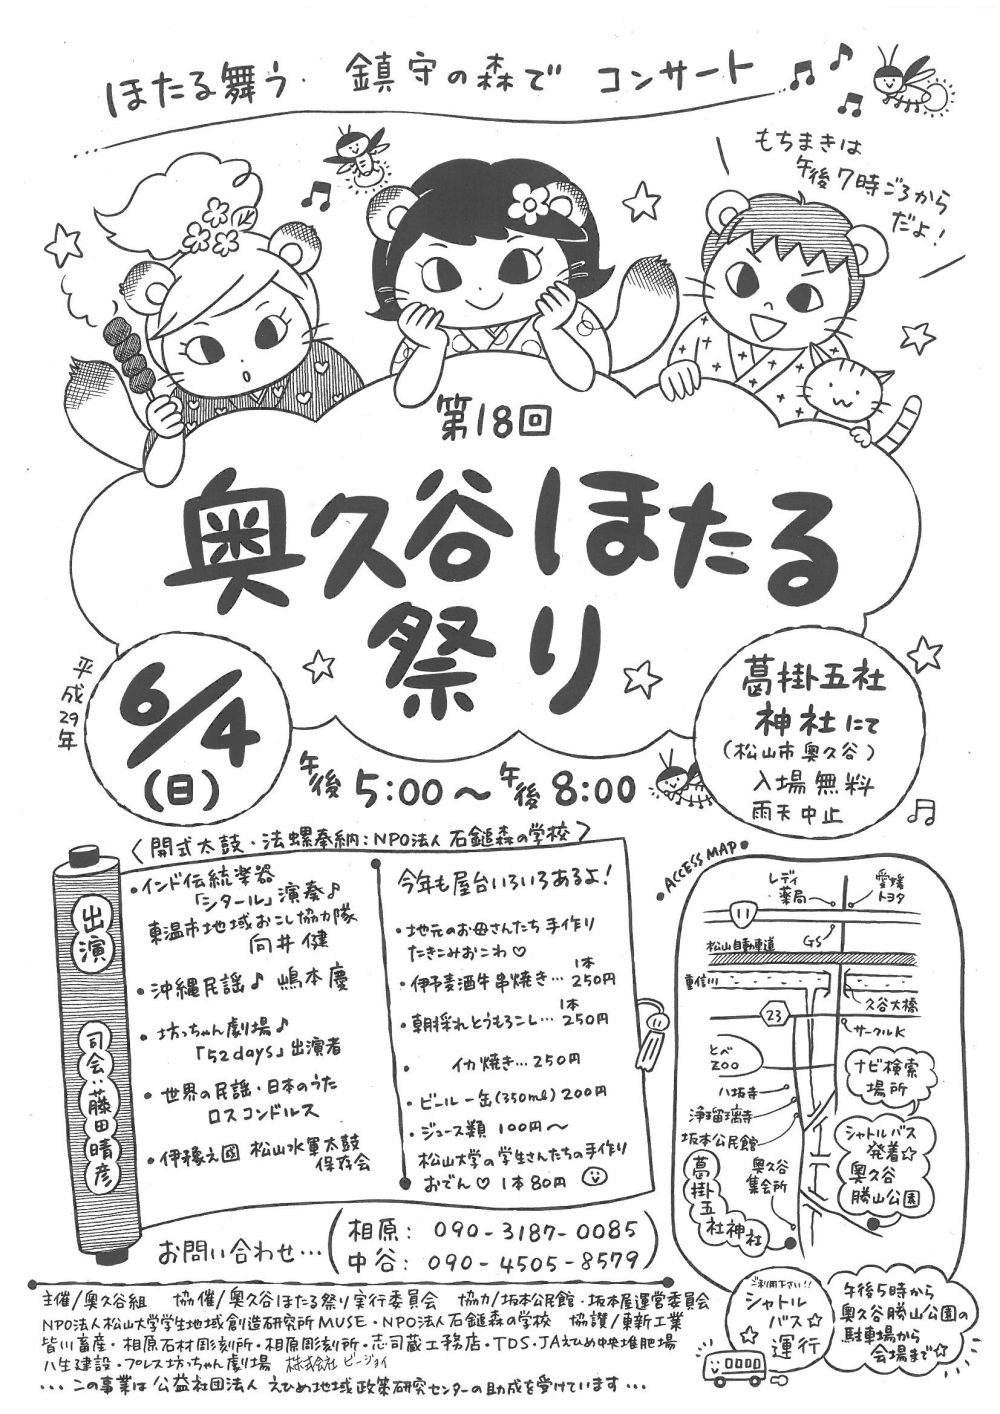 ほたる舞う 鎮守の森で コンサート
もちまきは
午後7時ごろから
だよ！
第18回
奥久谷ほたる
祭り
平成29年
6/4
(日)
午後5:00～午後8:00
葛掛五社
神社にて
(松山市奥久谷)
入場無料
雨天中止
〈開式太鼓・法螺奉納：NPO法人 石鎚森の学校〉
出演
司会：藤田晴彦
・インド伝統楽器
「シタール」演奏♪
東温市地域おこし協力隊
向井 健
・沖縄民謡♪ 嶋本慶
・坊っちゃん劇場♪
「52days」出演者
・世界の民謡・日本のうた
ロスコンドルス
・伊豫之國 松山水軍太鼓
保存会
今年も屋台いろいろあるよ！
・地元のお母さんたち手作り
たきこみおこわ♡
・伊予麦酒牛串焼き…1本250円
・朝採れとうもろこし…1本250円
・イカ焼き…250円
・ビール一缶(350ml)200円
・ジュース類 100円～
松山大学の学生さんたちの手作り
おでん♡ 1本80円
ACCESS MAP
レディ薬局
愛媛トヨタ
11
GS
松山自動車道
重信川
久谷大橋
23
サークルK
とべZOO
八坂寺
浄瑠璃寺
坂本公民館
奥久谷集会所
葛掛五社神社
ナビ検索
場所
シャトルバス
発着☆
奥久谷
勝山公園
お問い合わせ…
相原：090-3187-0085
中谷：090-4505-8579
ご利用下さい!!
シャトル
バス☆
運行
午後5時から
奥久谷勝山公園の
駐車場から
会場まで☆
主催/奥久谷組 協催/奥久谷ほたる祭り実行委員会 協力/坂本公民館・坂本屋運営委員会
NPO法人松山大学学生地域創造研究所MUSE・NPO法人石鎚森の学校 協讃/東新工業
皆川畜産・相原石材彫刻所・相原彫刻所・志司蔵工務店・TDS・JAえひめ中央堆肥場
八生建設・プレス坊っちゃん劇場 株式会社ビージョイ
…この事業は公益社団法人 えひめ地域政策研究センターの助成を受けています…